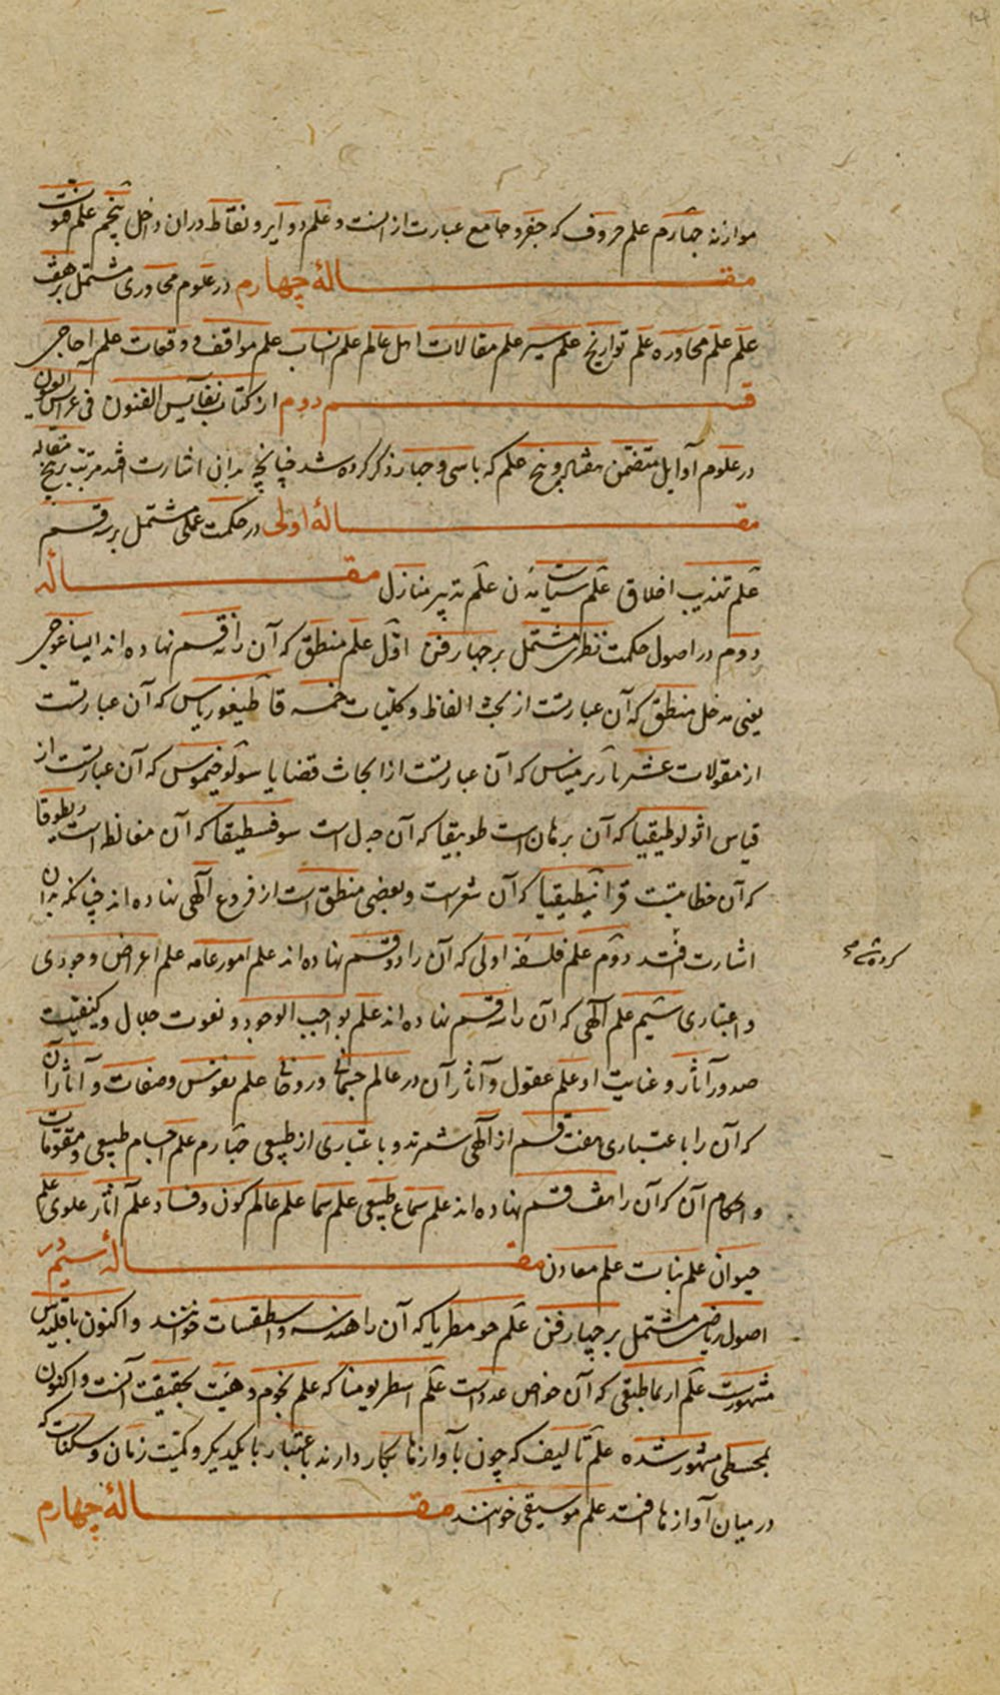 موازنه چهارم علم حروف که جفر و جامع عبارت از انست و علم دوایر و نقاط در ان داخل پنجم علم فتوت
مقالهٔ چهارم در علوم محاوری مشتمل بر هفت
علم علم محاوره علم تواریخ علم سیر علم مقالات اهل عالم علم انساب علم مواقف و وقعات علم احاجی
قسم دوم از کتاب نفایس الفنون فی عرایس العیون
در علوم اوایل متضمن هفتاد و پنج علم که با سی و چهار ذکر کرده شد چنانچه بدان اشارت افتد مرتب بر پنج مقاله
مقالهٔ اولی در حکمت عملی مشتمل بر سه قسم
علم تهذیب اخلاق علم سیاست مدن علم تدبیر منازل مقاله
دوم در اصول حکمت نظری مشتمل بر چهار فن اول علم منطق که آن را نه قسم نهاده اند ایساغوجی
یعنی مدخل منطق که آن عبارتست از بحث الفاظ و کلیات خمسه قاطیغوریاس که آن عبارتست
از مقولات عشر بارپرمیناس که آن عبارتست از ابحاث قضایا سولوخیموس که آن عبارتست از
قیاس اثولوطیقیا که آن برهان است طوبیقیا که آن جدل است سوفسطیقا که آن مغالطه است ریطوقا
که آن خطابتست قرانیطیقیا که آن شعر است و بعضی منطق است از فروع آلهی نهاده اند چنانکه بدان
اشارت افتد دوم علم فلسفه اولی که آن را دو قسم نهاده اند علم امور عامه علم اعراض وجودی
کرده شد
و اعتباری سیم علم آلهی که آن را سه قسم نهاده اند علم بواجب الوجود و نعوت جلال و کیفیت
صدور آثار و عنایت او علم عقول و آثار آن در عالم جسمانی و روحانی علم نفوس و صفات و آثار آن
که آن را باعتباری هفت قسم از آلهی شمرند و باعتباری از طبیعی چهارم علم اجسام طبیعی و مقومات
و احکام آن که آن را هشت قسم نهاده اند علم سماع طبیعی علم سما علم عالم کون و فساد علم آثار علوی علم
حیوان علم نبات علم معادن مقالهٔ سیم در
اصول ریاضی مشتمل بر چهار فن علم جومطریا که آن را هندسه و اسطقسات خوانند و اکنون باقلیدس
مشهور است علم ارثماطیقی که آن خواص عدد است علم اسطرنومیا که علم نجوم و هیئت بحقیقت آنست و اکنون
بمجسطی مشهور شده علم تالیف که چون بآوازها بکار دارند باعتبار با یکدیکر و کمیت زمان و سکنات که
در میان آوازها افتد علم موسیقی خوانند مقالهٔ چهارم